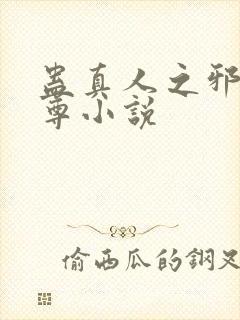 蛊真人之邪
尊小說
偷西瓜的鋼叉